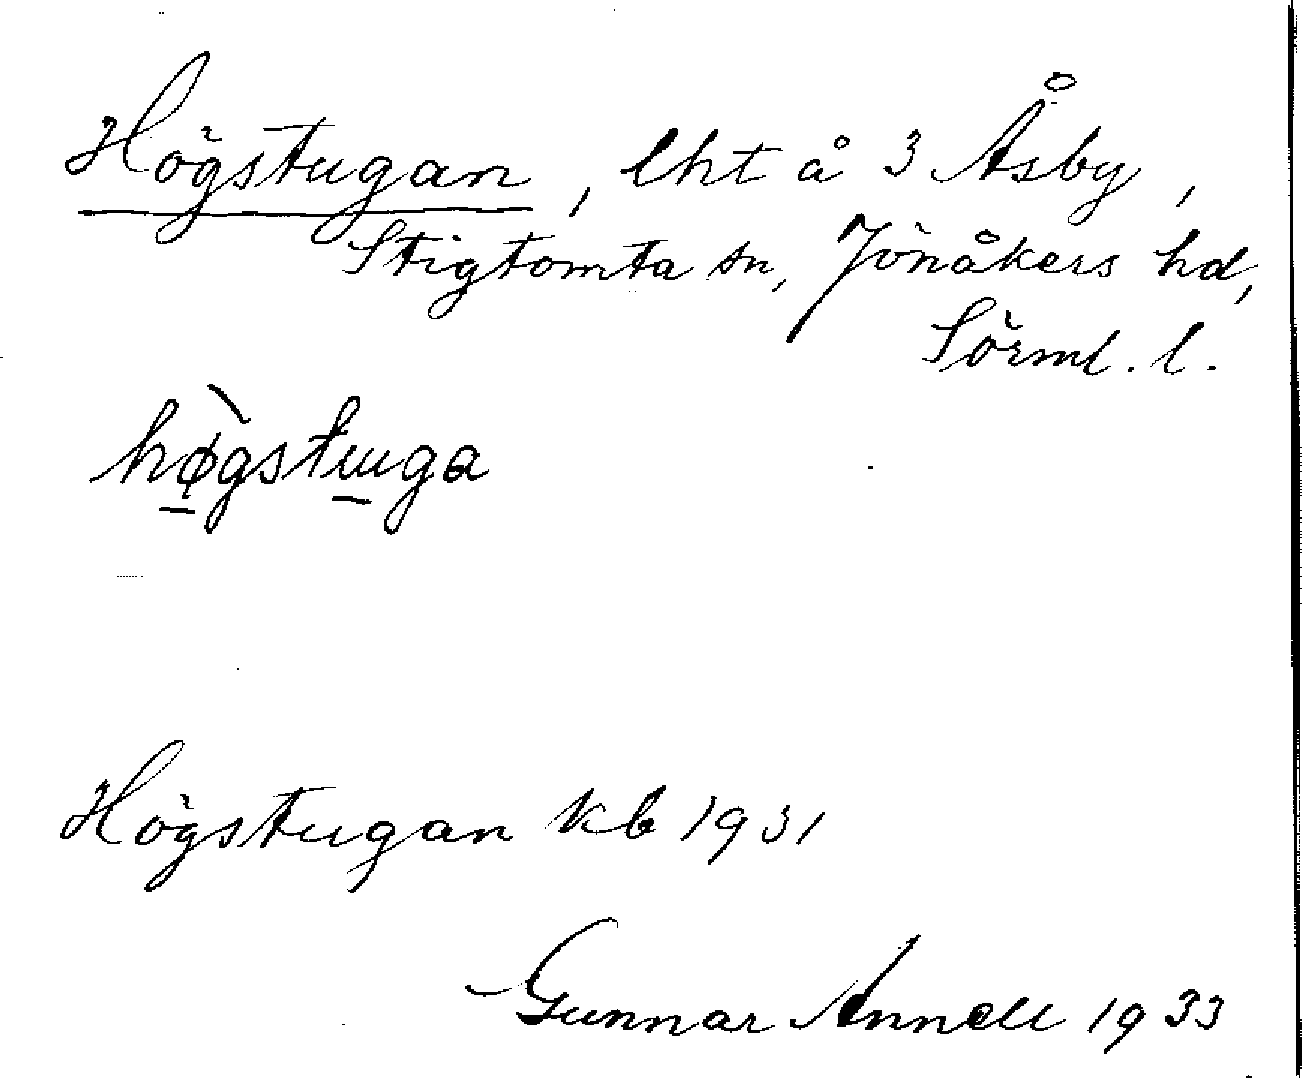 Högstugan, lht å 3 Åsby,
Stigtomta sn, Jönåkers hd,
Sörml. l.
hø̠̀gstu̠ga
Högstugan kb 1931
Gunnar Annell 1933